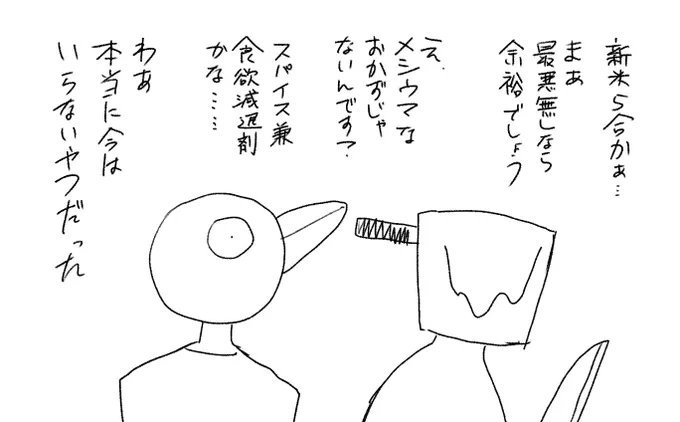 新米5合かぁ…
まぁ
最悪無しなら
余裕でしょう
え、
メシウマな
おかずじゃ
ないんです?
スパイス兼
食欲減退剤
かな……
わぁ
本当に今は
いらないやつだった